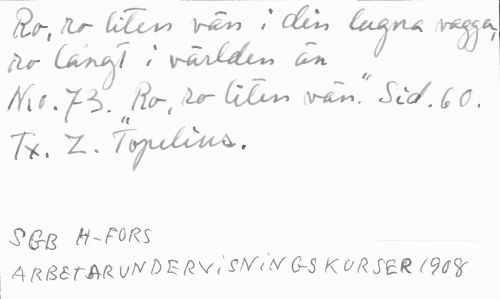 Ro, ro liten vän i din lugna vagga,
ro långt i världen än
No. 73. "Ro, ro liten vän." Sid. 60.
Tx. Z. Topelius.
SGB H-FORS
ARBETARUNDERVISNINGSKURSER 1908